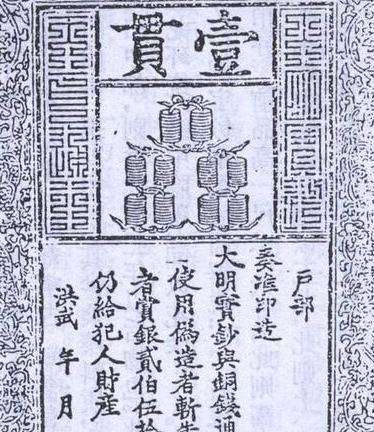 壹貫
大明寶鈔
天下通行
戶部
奏准印造
大明寶鈔與銅錢通
使用偽造者斬告
者賞銀貳伯伍拾
仍給犯人財產
洪武 年 月